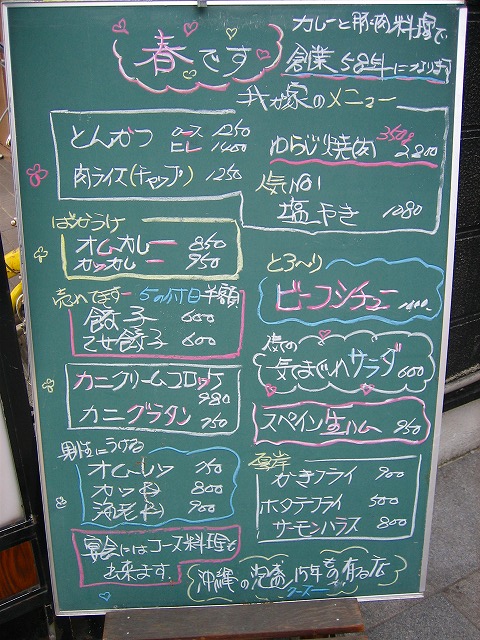 春です
カレーと豚肉料理で
創業58年になります
我が家のメニュー
とんかつ ロース 1250
ヒレ 1400
肉ライス(チャップ) 1250
ゆらじ焼肉 350g 2800
人気No1
塩やき 1280
ばかうけ
オムカレー 850
カツカレー 950
とろ〜り
ビーフシチュー
売れてます 5の付く日半額
餃子 600
乙女餃子 600
人気の
気まぐれサラダ 600
カニクリームコロッケ
980
カニグラタン 760
スペイン生ハム 860
男性にうける
オムレツ 750
カツ丼 800
海老丼 900
厚岸
かきフライ 900
ホタテフライ 500
サーモンハラス 800
宴会にはコース料理も
出来ます
沖縄の泡盛 15年もの有る店
クース